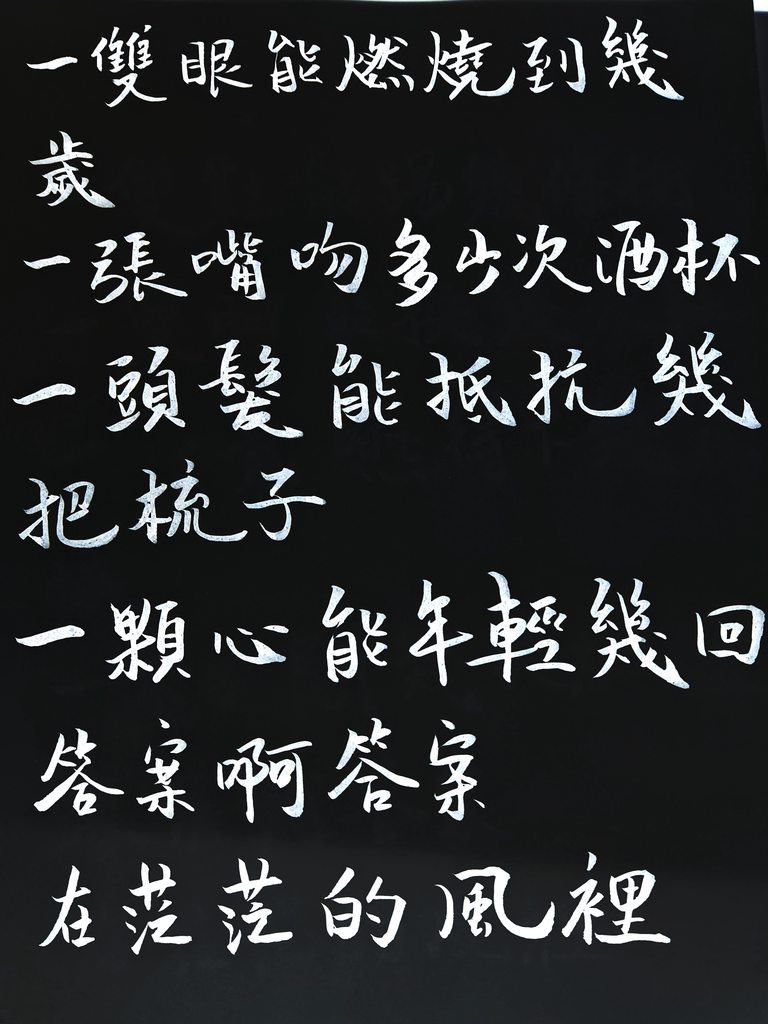 一雙眼能燃燒到幾
歲
一張嘴吻多少次酒杯
一頭髮能抵抗幾
把梳子
一顆心能年輕幾回
答案啊答案
在茫茫的風裡